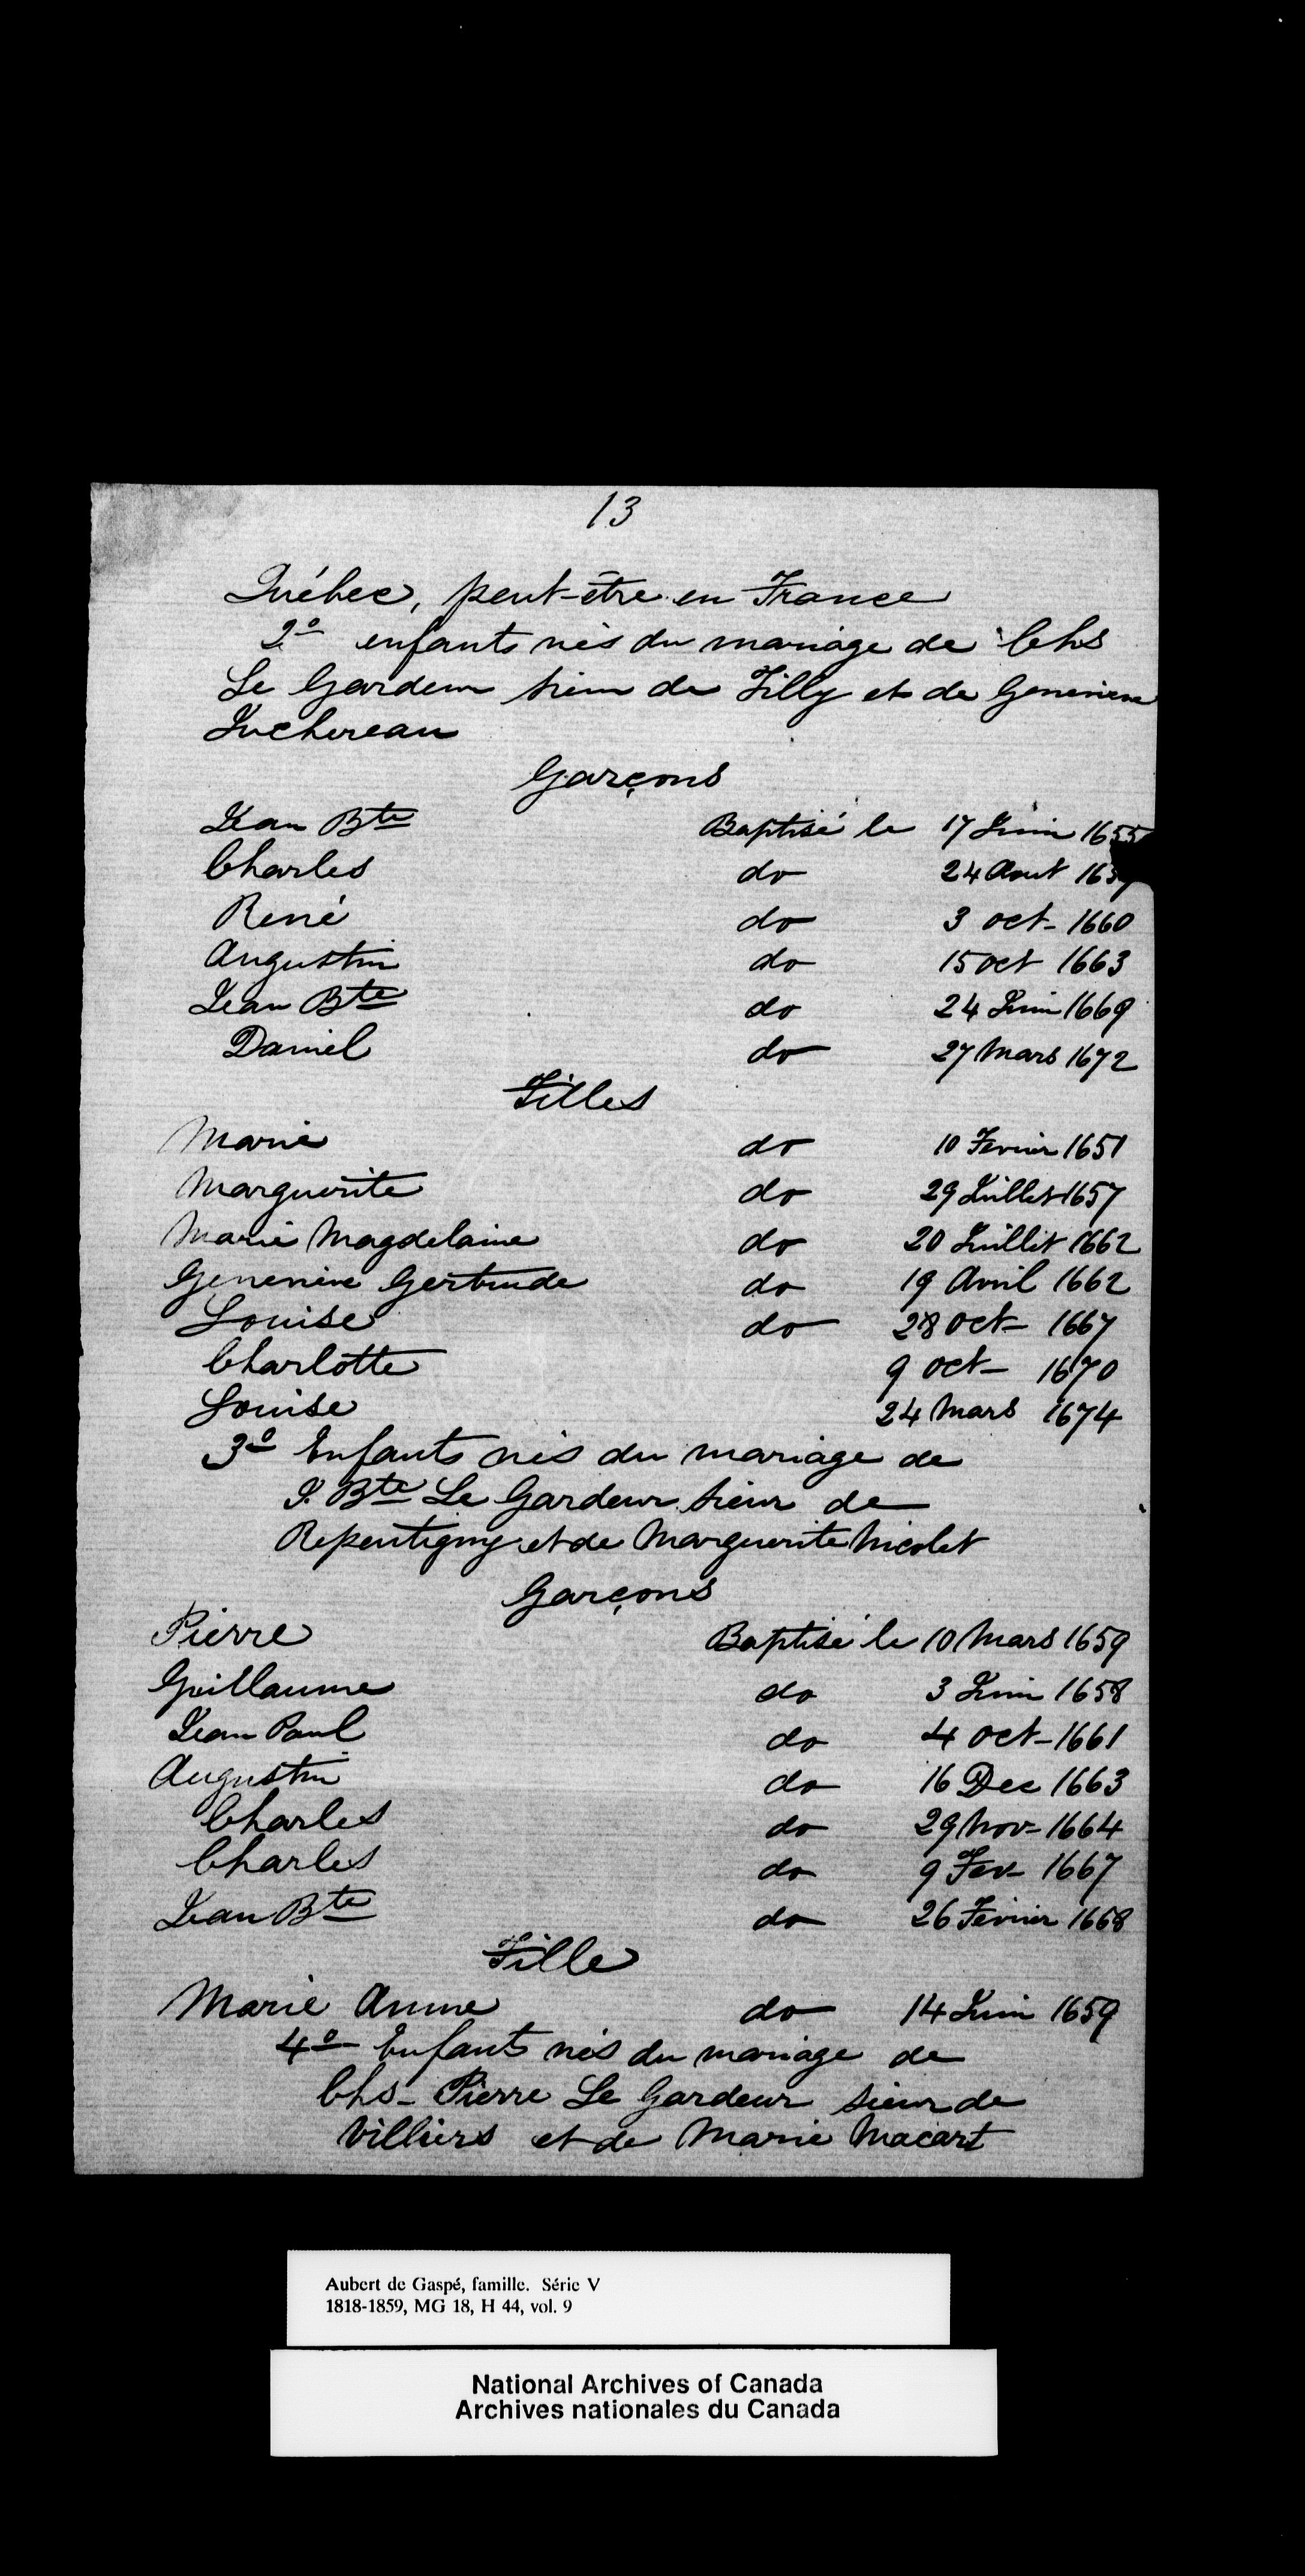 13
Québec, peut-être en France
2º enfants nés du mariage de Chs
Le Gardeur sieur de Tilly et de Genevieve
Juchereau
Garçons
Jean Bte Baptisé le 17 Juin 1655
Charles do 24 Aout
René do 3 oct- 1660
Augustin do 15 oct 1663
Jean Bte do 24 Juin 1669
Daniel do 27 Mars 1672
Filles
Marie do 10 Fevrier 1651
Marguerite do 29 Juillet 1657
Marie Magdelaine do 20 Juillet 1662
Genevieve Gertrude do 19 Avril 1662
Louise do 28 oct- 1667
Charlotte 9 oct- 1670
Louise 24 Mars 1674
3º Enfants nés du mariage de
J. Bte Le Gardeur sieur de
Repentigny et de Marguerite Nicolet
Garçons
Pierre Baptisé le 10 Mars 1659
Guillaume do 3 Juin 1658
Jean Paul do 4 oct- 1661
Augustin do 16 Dec 1663
Charles do 29 Nov- 1664
Charles do 9 Fev- 1667
Jean Bte do 26 Fevrier 1668
Fille
Marie Anne do 14 Juin 1659
4º Enfants nés du mariage de
Chs- Pierre Le Gardeur sieur de
Villiers et de Marie Macart
Aubert de Gaspé, famille. Série V
1818-1859, MG 18, H 44, vol. 9
National Archives of Canada
Archives nationales du Canada